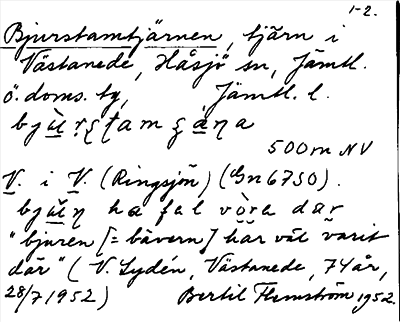 1-2.
Bjurstamtjärnen, tjärn i
Västanede, Håsjö sn, Jämtl.
ö. doms. tg, Jämtl. l.
500 m NV
V. i V. (Ringsjön) (Gn 6750).
"bjuren [= bävern] har väl varit
där" (V. Lydén, Västanede, 74 år,
28/7 1952) Bertil Flemström 1952.